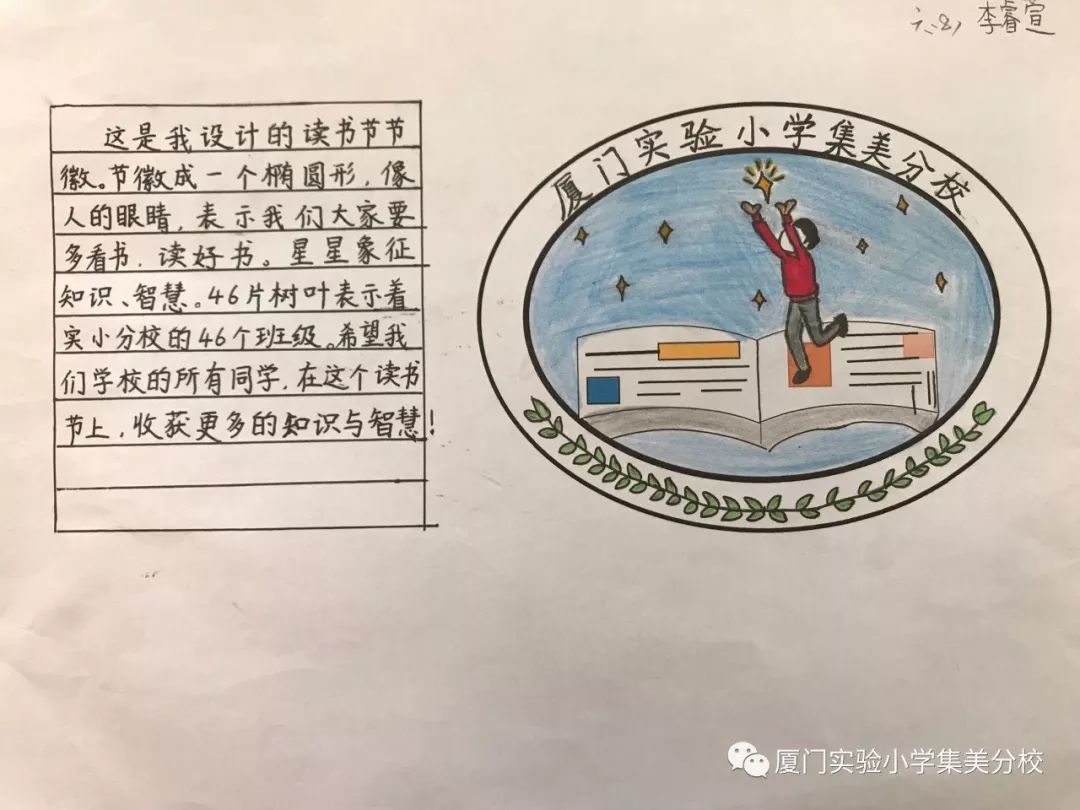 六(2) 李睿萱
这是我设计的读书节节
徽。节徽成一个椭圆形,像
人的眼睛,表示我们大家要
多看书,读好书。星星象征
知识、智慧。46片树叶表示着
实小分校的46个班级。希望我
们学校的所有同学,在这个读书
节上,收获更多的知识与智慧!
厦门实验小学集美分校
厦门实验小学集美分校